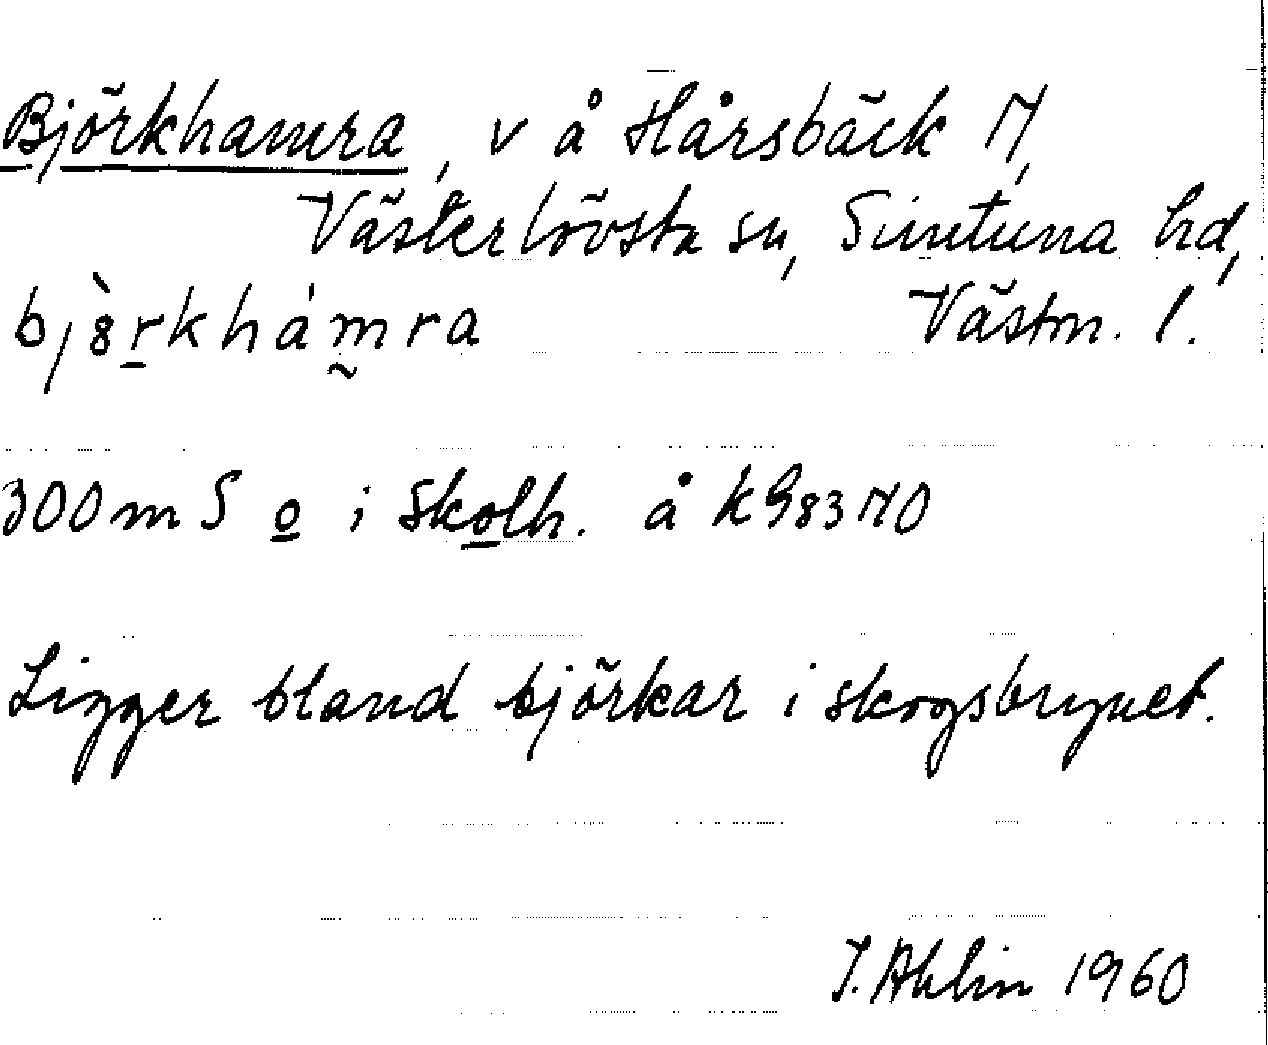 Björkhamra, v å Hårsbäck 17,
Västerlövsta sn, Simtuna hd,
bjö̀rkhámra Västm. l.
300 m S o i Skolh. å k 98370
Ligger bland björkar i skogsbrynet.
J. Ahlin 1960